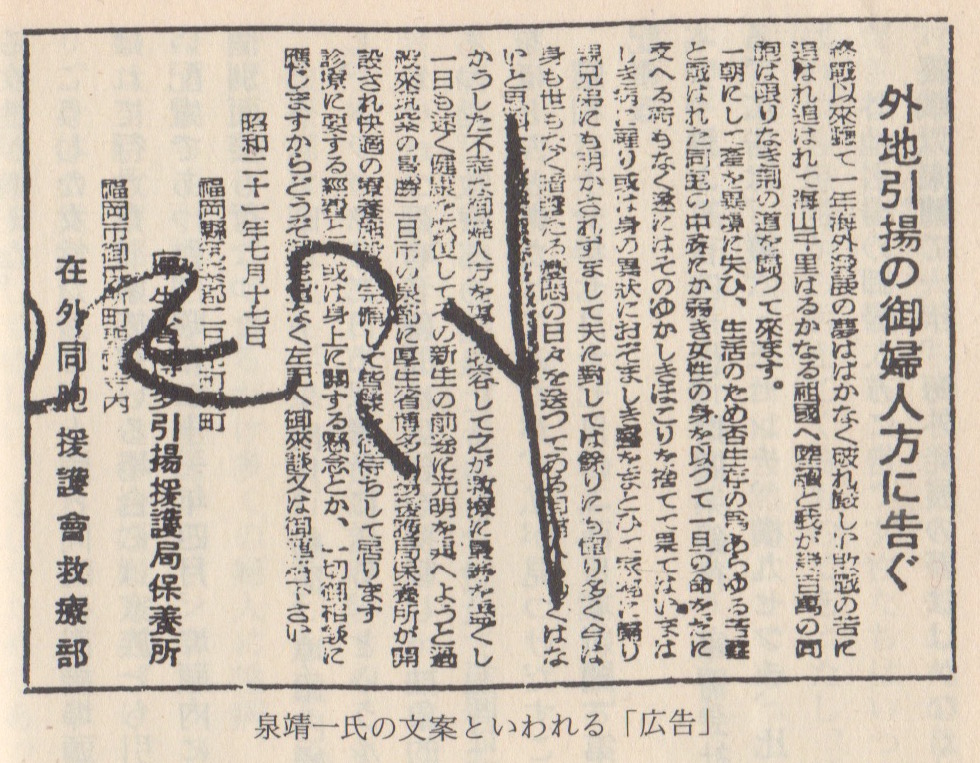 外地引揚の御婦人方に告ぐ
終戰以來軈て一年海外發展の夢ははかなく破れ敗戰の苦に
追はれ追はれて海山千里はるかなる祖國へ陸續と我が幾百萬の同
胞は限りなき荊の道を辿つて來ます。
一朝にして產を異境に失ひ、生活のため否生存の爲あらゆる苦難
と戰はれた同胞の中にはか弱き女性の身を以つて一日の命をだに
支へる術もなく遂にはそのゆかしきほこりを捨てて果てはいまは
しき病に罹り或は身の異狀におぞましき翳をまとひて家郷に歸り
親兄弟にも明かされずまして夫に對しては餘りにも憚り多く今は
身も世もなく暗澹たる懊悶の日々を送つてゐる くはな
いと
かうした不幸な御婦人方を 收容して之が救療に最善を盡くし
一日も速く健康を恢復して の新生の前途に光明を與へようと過
般來筑紫の景勝二日市の泉都に厚生省博多引揚援護局保養所が開
設され快適の療養施設も完備して皆樣を御待ちして居ります
診療に要する經費とか或は身上に關する懸念とか、一切御相談に
應じますからどうぞ御遠慮なく左記へ御來談又は御電話下さい
昭和二十一年七月十七日
福岡縣筑紫郡二日市町
厚生省博多引揚援護局保養所
福岡市御供所町聖福寺内
在外同胞援護會救療部
泉靖一氏の文案といわれる「広告」